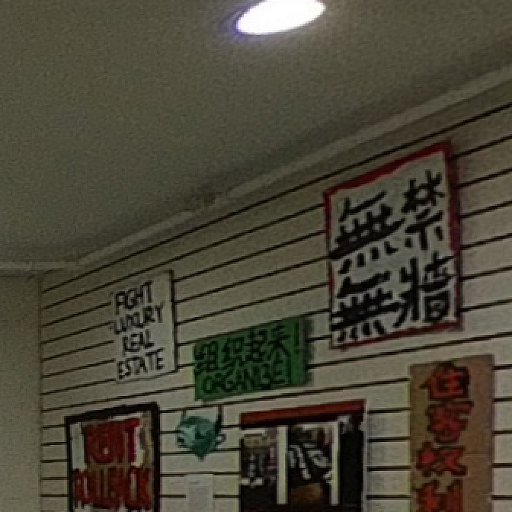 FIGHT
LUXURY
REAL
ESTATE
组织起来!
ORGANIZE!
無禁
無牆
RENT
ROLLBACK
住客权利